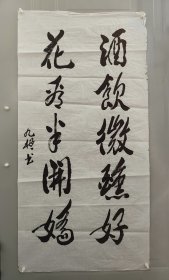 酒飲微醺好
花看半開嬌
九根书